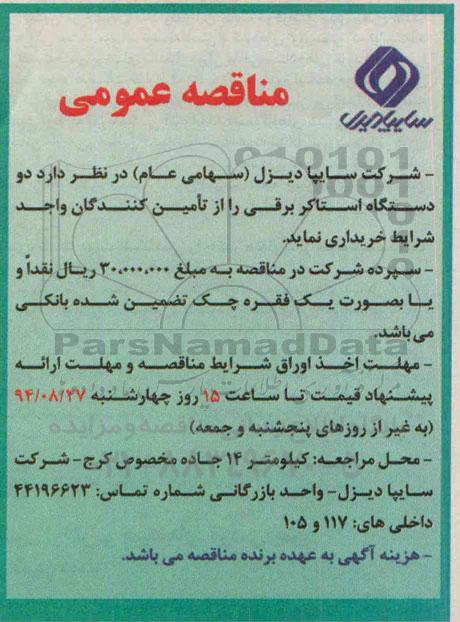 سایپادیزل
مناقصه عمومی
- شرکت سایپا دیزل (سهامی عام) در نظر دارد دو
دستگاه استاکر برقی را از تأمین کنندگان واجد
شرایط خریداری نماید.
- سپرده شرکت در مناقصه به مبلغ ۳۰،۰۰۰،۰۰۰ ریال نقداً و
یا بصورت یک فقره چک تضمین شده بانکی
می باشد.
ParsNamadData
- مهلت اخذ اوراق شرایط مناقصه و مهلت ارائه
پیشنهاد قیمت تا ساعت ۱۵ روز چهارشنبه ۹۴/۰۸/۲۷
(به غیر از روزهای پنجشنبه و جمعه)
- محل مراجعه: کیلومتر ۱۴ جاده مخصوص کرج- شرکت
سایپا دیزل- واحد بازرگانی شماره تماس: ۴۴۱۹۶۶۲۳
داخلی های: ۱۱۷ و ۱۰۵
- هزینه آگهی به عهده برنده مناقصه می باشد.